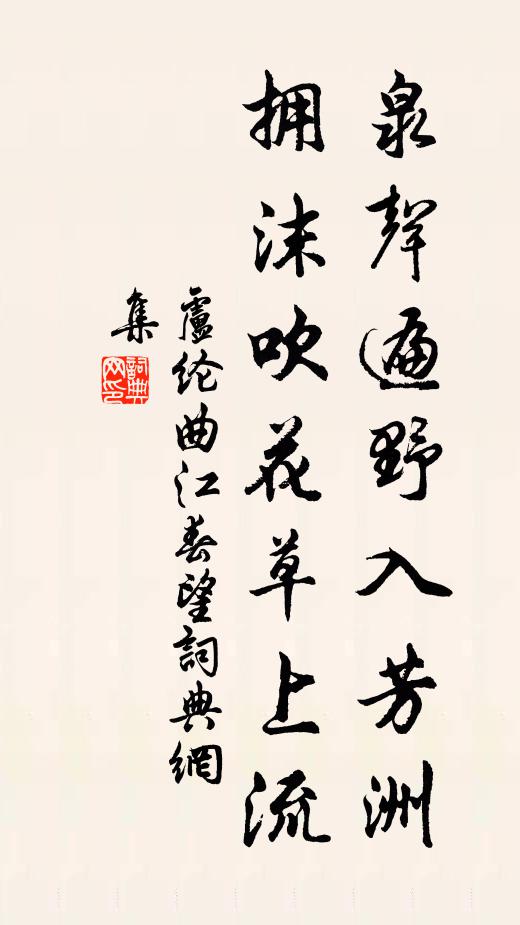 泉聲遍野入芳洲
拥沫吹花草上流
盧纶曲江春望詞典網
集
詞典
网印